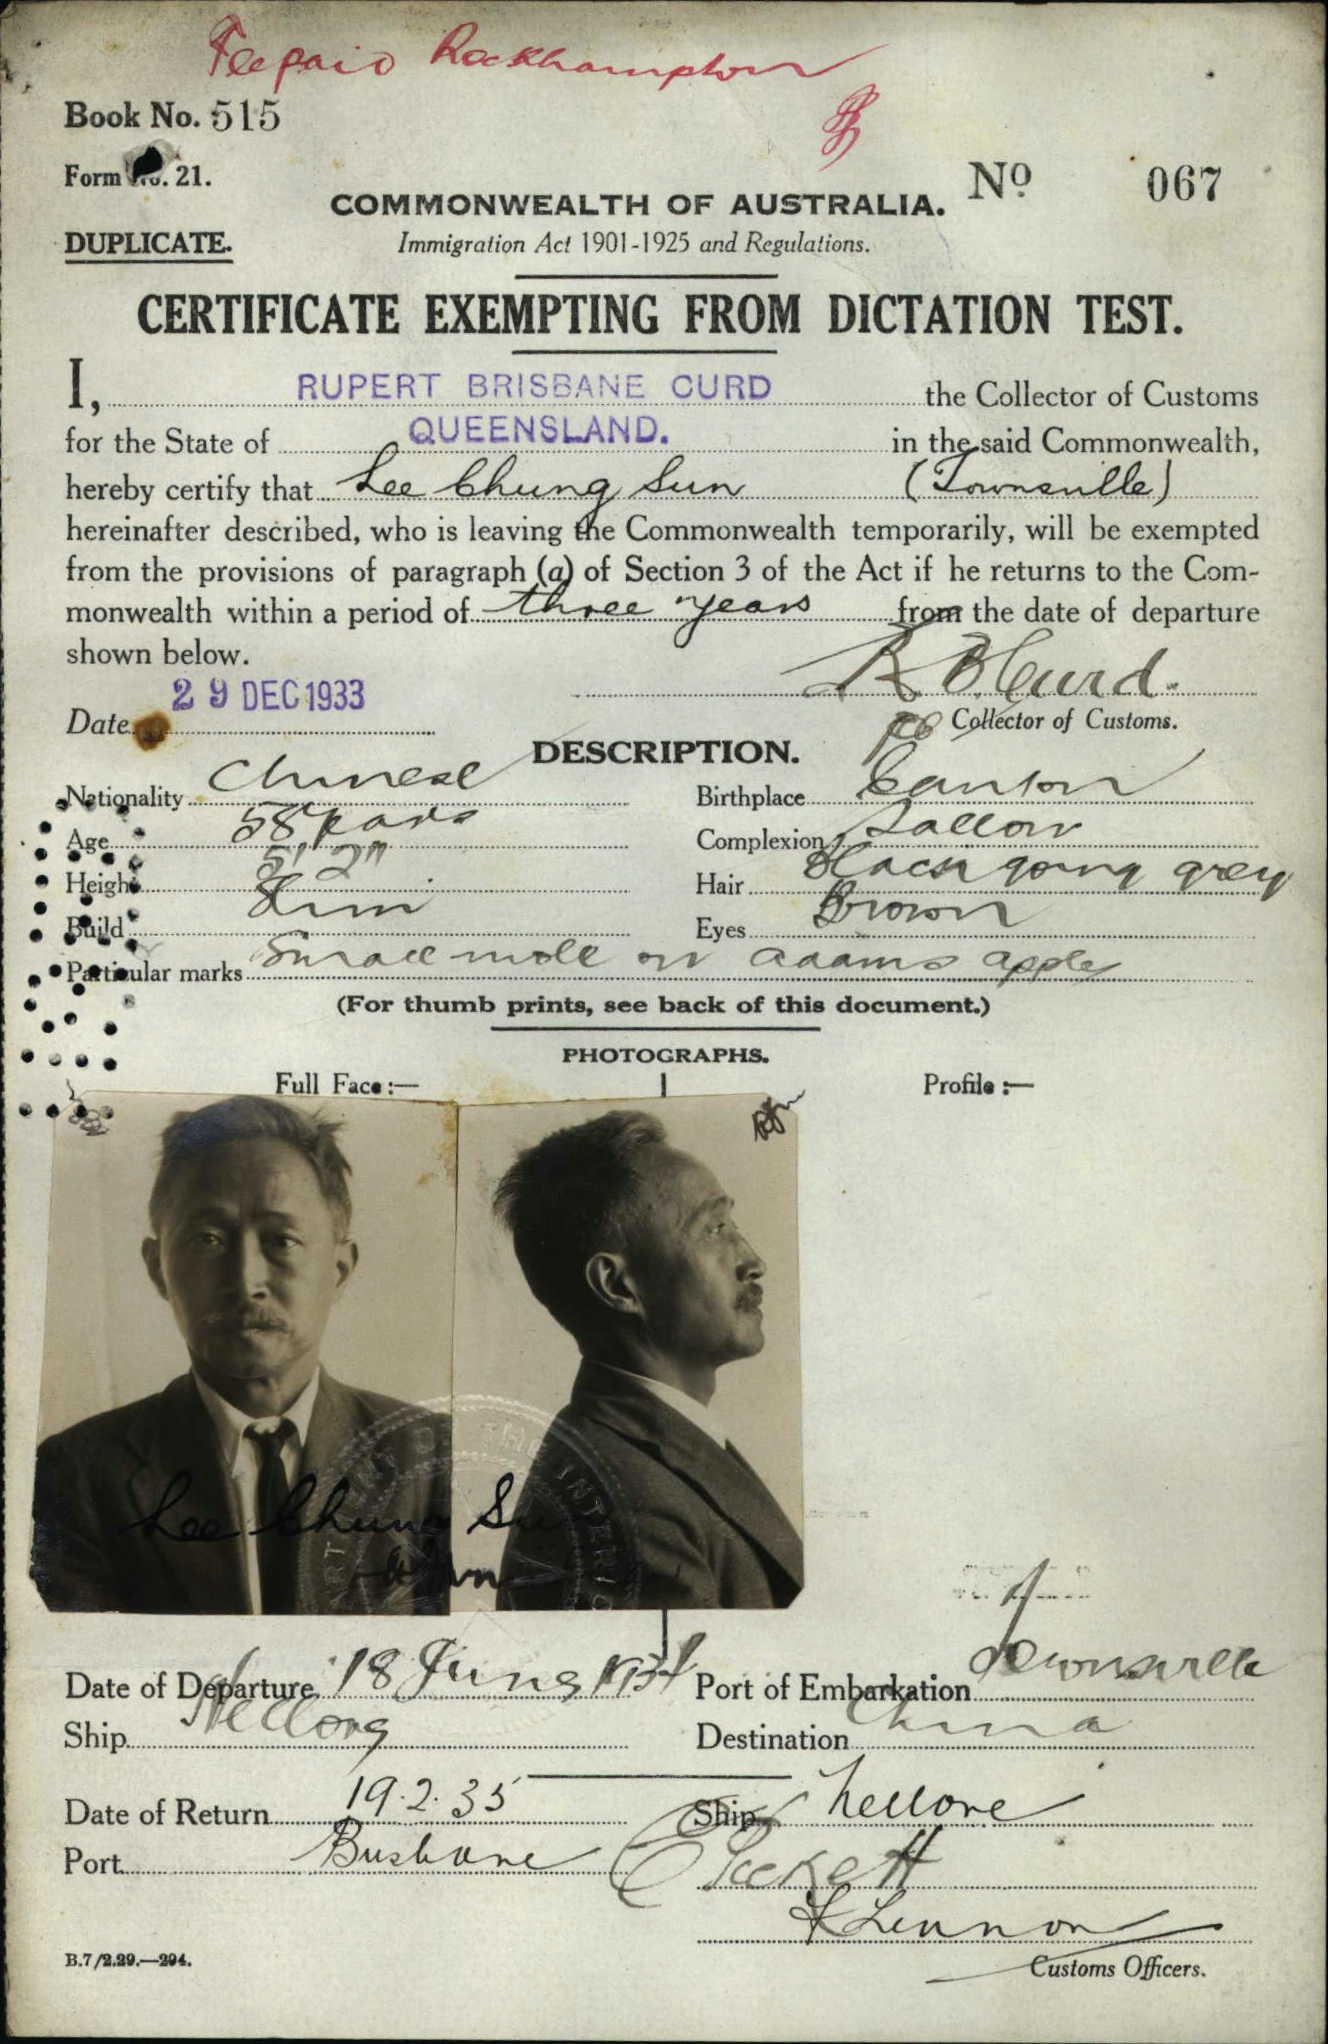 Fee paid Rockhampton
Book No. 515
Form No. 21.
COMMONWEALTH OF AUSTRALIA.
No 067
DUPLICATE.
Immigration Act 1901-1925 and Regulations.
CERTIFICATE EXEMPTING FROM DICTATION TEST.
I, RUPERT BRISBANE CURD the Collector of Customs
for the State of QUEENSLAND. in the said Commonwealth,
hereby certify that Lee Chung Sun (Townsville)
hereinafter described, who is leaving the Commonwealth temporarily, will be exempted
from the provisions of paragraph (a) of Section 3 of the Act if he returns to the Com-
monwealth within a period of three years from the date of departure
shown below.
R B Curd.
Date 29 DEC 1933
Collector of Customs.
DESCRIPTION.
Nationality Chinese Birthplace Canton
Age 58 years Complexion Sallow
Height 5' 2" Hair Black going grey
Build Slim Eyes Brown
Particular marks Small mole on adams apple
(For thumb prints, see back of this document.)
PHOTOGRAPHS.
Full Face:— Profile:—
Lee Chung Su
Date of Departure 18 June 1934 Port of Embarkation Townsville
Ship Nellore Destination China
Date of Return 19.2.35 Ship Nellore
Port Brisbane
Lennon
B.7/2.29.—294.
Customs Officers.